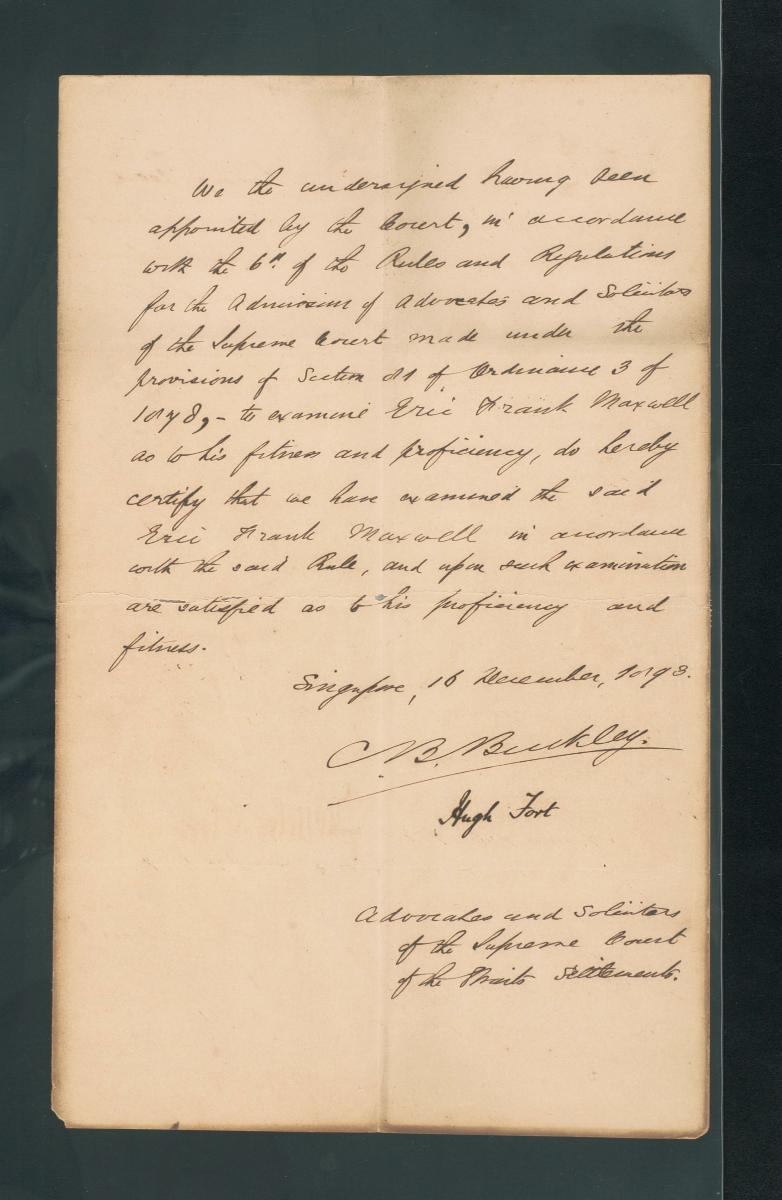 We the undersigned having been
appointed by the Court, in accordance
with the 6th. of the Rules and Regulations
for the Admission of Advocates and Solicitors
of the Supreme Court made under the
provisions of Section 81 of Ordinance 3 of
1878, - to examine Eric Frank Maxwell
as to his fitness and proficiency, do hereby
certify that we have examined the said
Eric Frank Maxwell in accordance
with the said Rule, and upon such examination
are satisfied as to his proficiency and
fitness.
Singapore, 16 December, 1893.
C B. Buckley.
Hugh Fort
Advocates and Solicitors
of the Supreme Court
of the Straits Settlements.